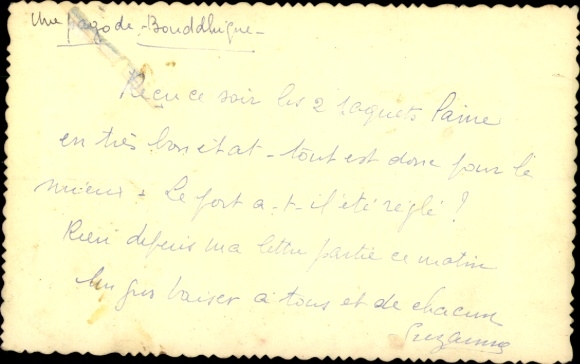 Une pagode - Bouddhique -
Reçu ce soir les 2 paquets laine
en très bon état - tout est donc pour le
mieux. Le port a-t-il été réglé ?
Rien depuis ma lettre partie ce matin
Un gros baiser à tous et de chacun
Suzanne